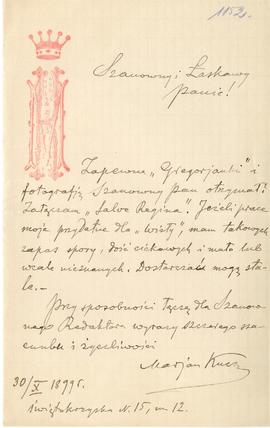 1152.
Szanowny i Łaskawy
Panie!
Zapewne „Gregorjanki” i
fotografją Szanowny Pan otrzymał?
Załączam „Salve Regina”. Jeżeli prace
moje przydatne dla „Wisły” mam takowych
zapas spory, dość ciekawych i mało lub
wcale nieznanych. Dostarczać mogę sta-
le. —
Przy sposobności łączę dla Szanow-
nego Redaktora wyrazy szczerego sza-
cunku i życzliwości
Marjan
30/X 1899 r.
Świętokrzyska N. 15, m 12.